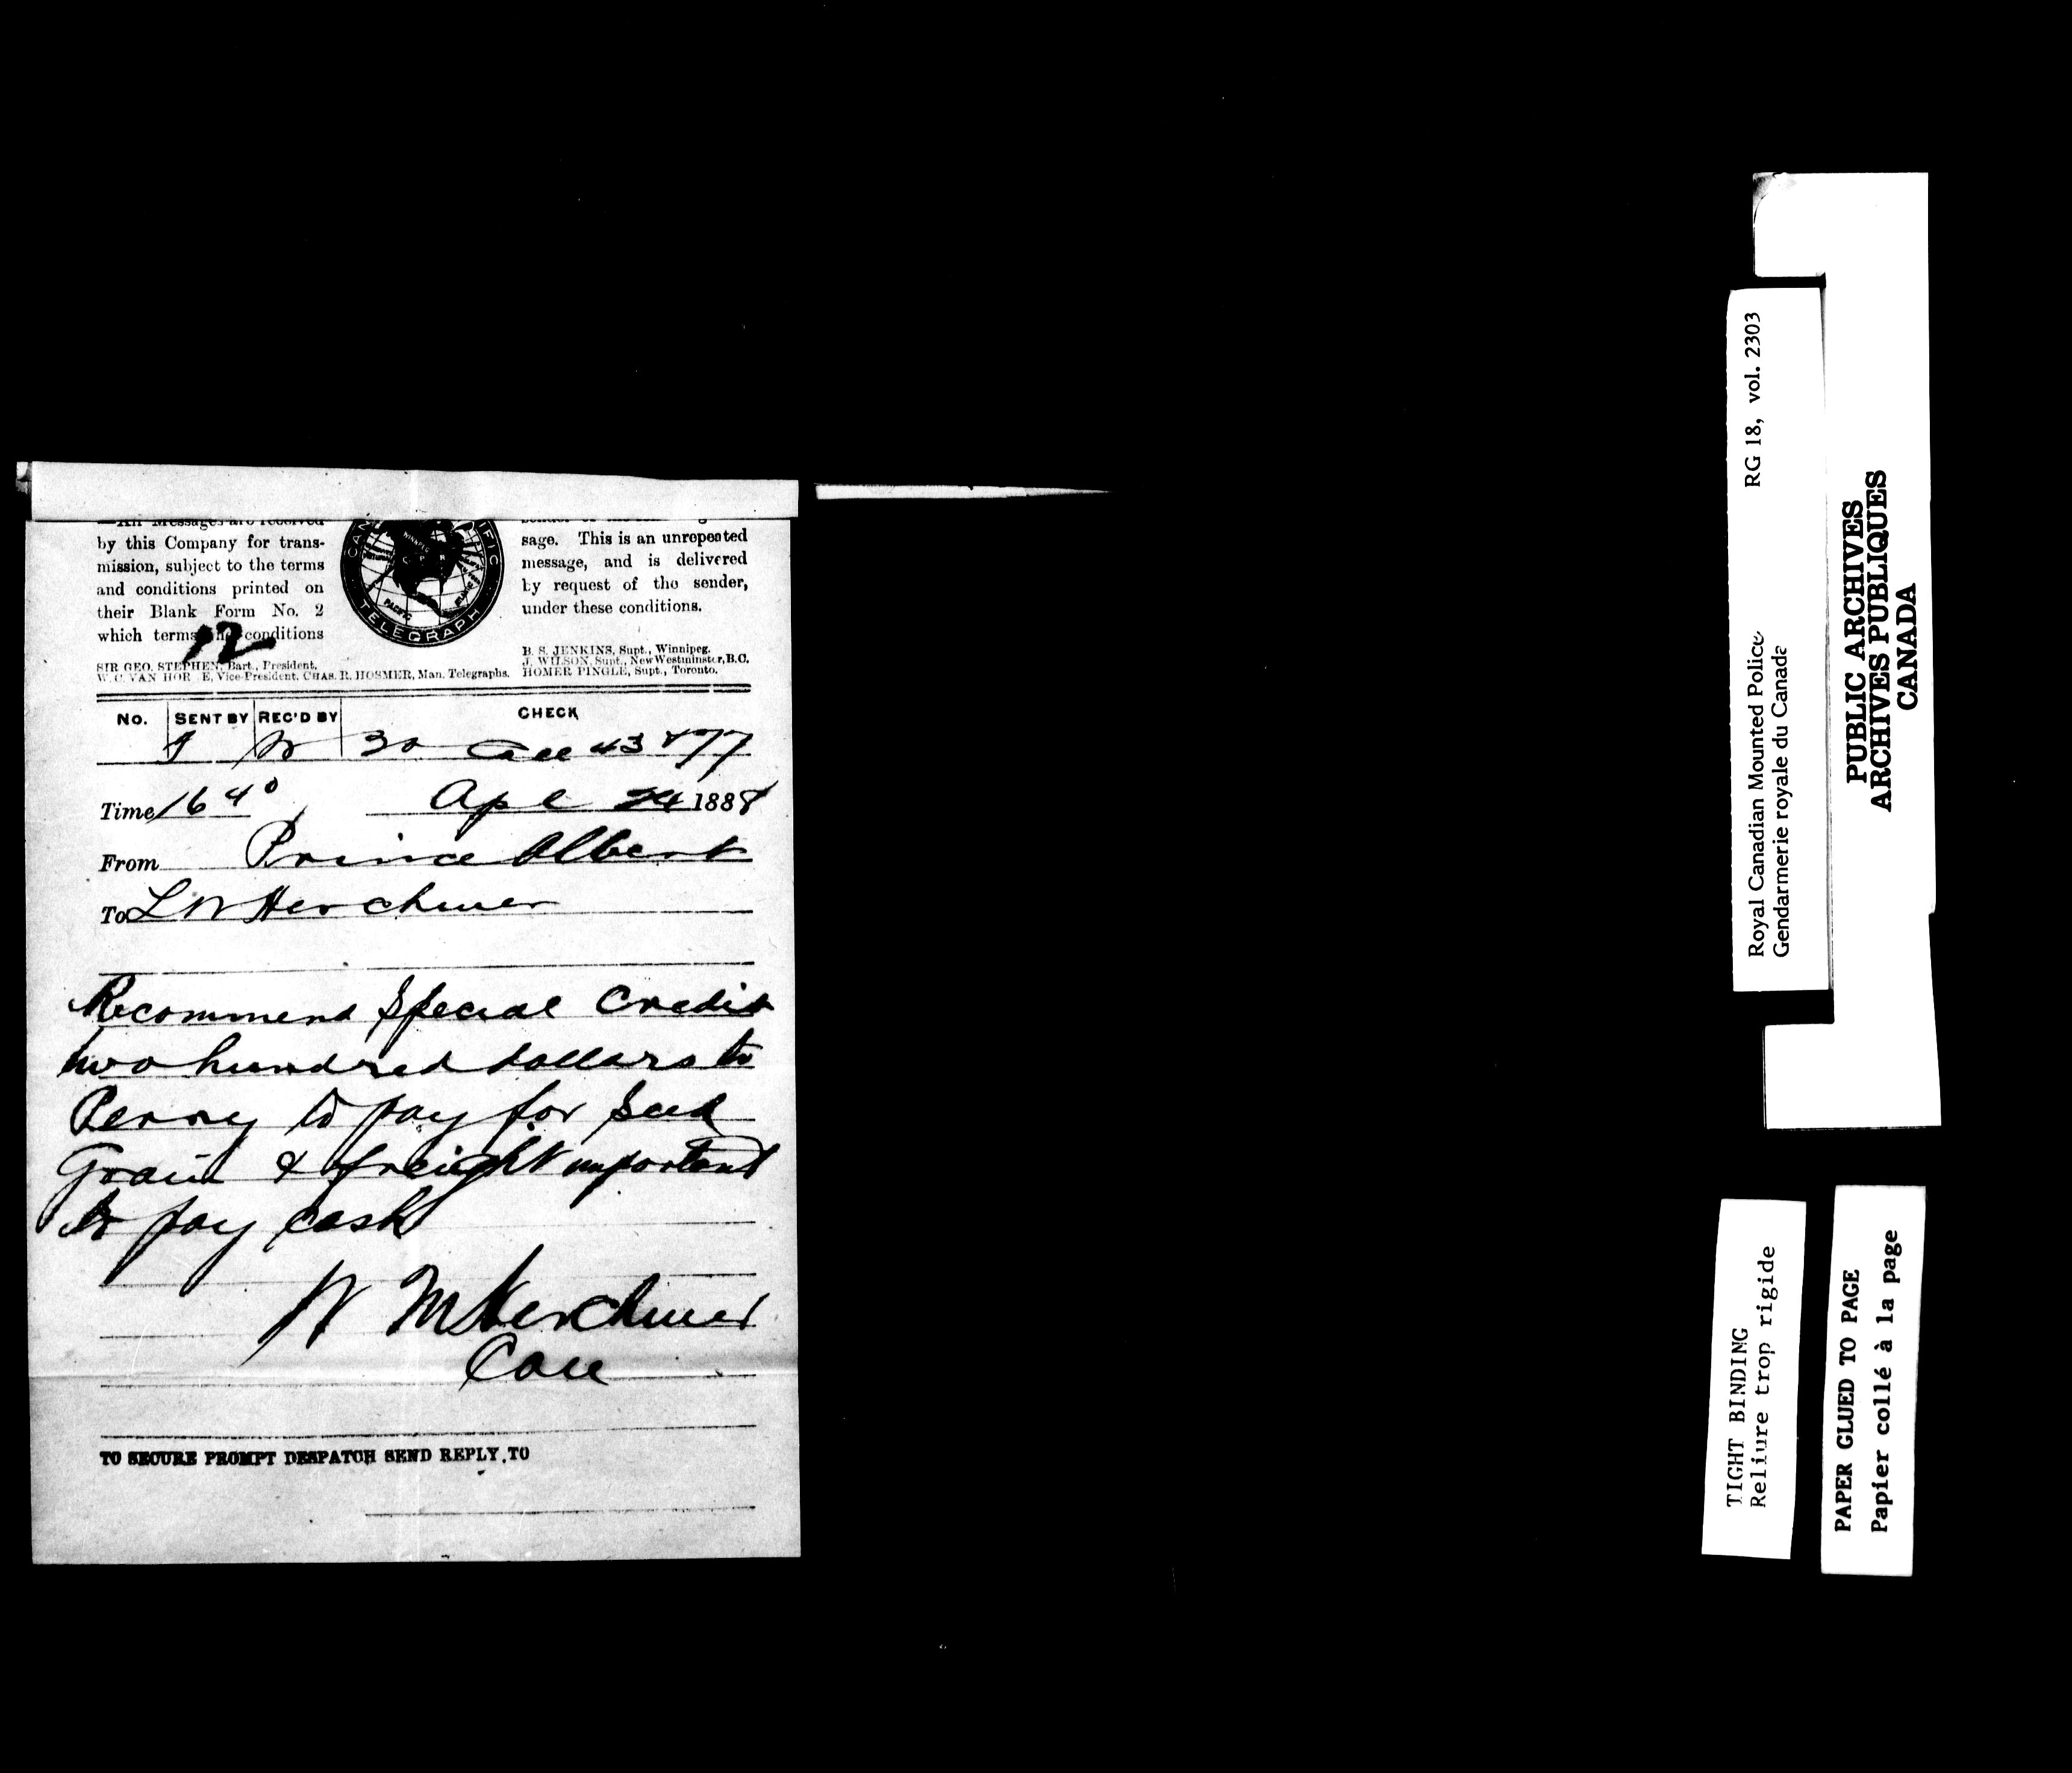 by this Company for trans-
mission, subject to the terms
and conditions printed on
their Blank Form No. 2
which terms conditions
12
sage. This is an unrepeated
message, and is delivered
by request of the sender,
under these conditions.
TELEGRAPH
PACIFIC
SIR GEO. STEPHEN, Bart., President.
W. C. VAN HOR E, Vice-President. CHAS. R. HOSMER, Man. Telegraphs.
B. S. JENKINS, Supt., Winnipeg.
J. WILSON, Supt., New Westminster, B.C.
HOMER PINGLE, Supt., Toronto.
No. SENT BY REC'D BY CHECK
30 Coll 43 & 77
Time 16 40 Apl 24 1888
From Prince Albert
To L W Herchmer
Recommend Special Credit
two hundred dollars to
Perry to pay for Seed
Grain & freight important
to pay cash
W M Herchmer
TO SECURE PROMPT DESPATCH SEND REPLY TO
RG 18, vol. 2303
Royal Canadian Mounted Police
Gendarmerie royale du Canada
PUBLIC ARCHIVES
ARCHIVES PUBLIQUES
CANADA
TIGHT BINDING
Reliure trop rigide
PAPER GLUED TO PAGE
Papier collé à la page